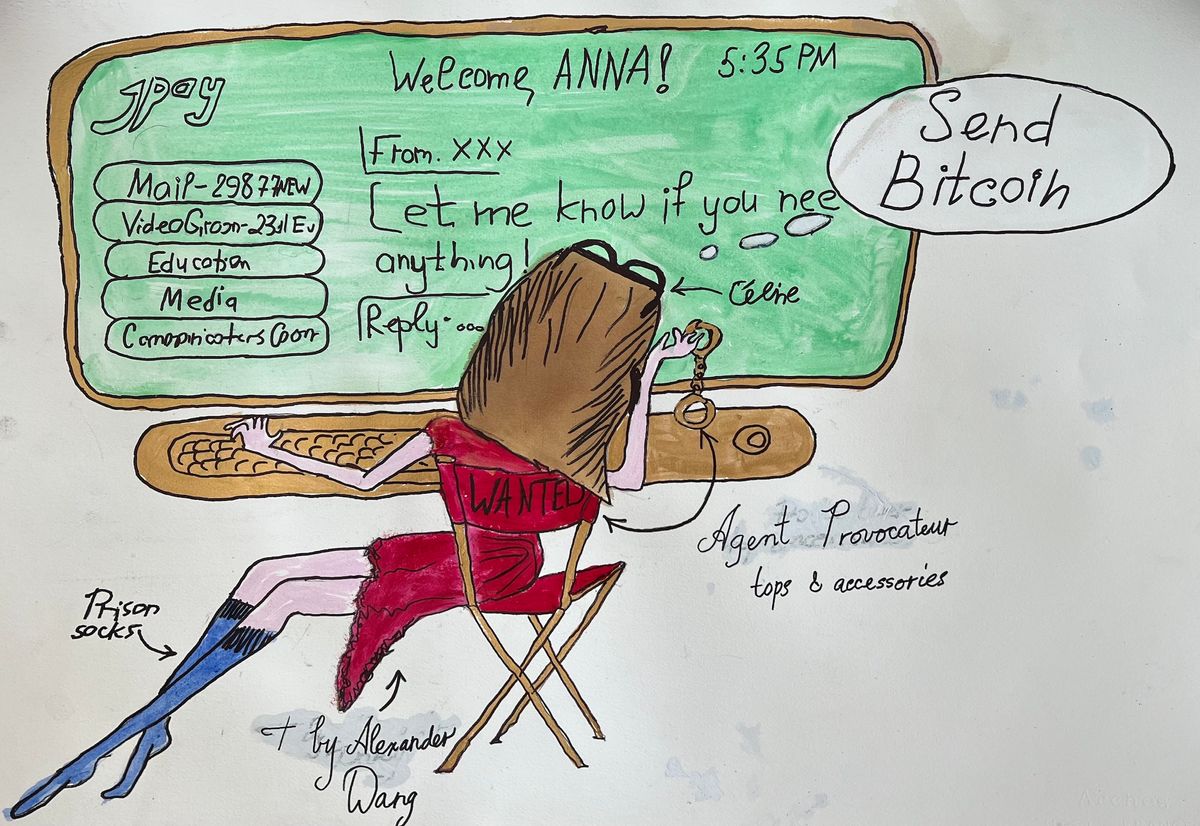 jpay
Welcome, ANNA!
5:35 PM
Mail-29877 NEW
Education
Media
From. XXX
Let me know if you nee
anything!
Reply....
Send
Bitcoin
Céline
WANTED
Agent Provocateur
tops & accessories
Prison
socks
T by Alexander
Wang